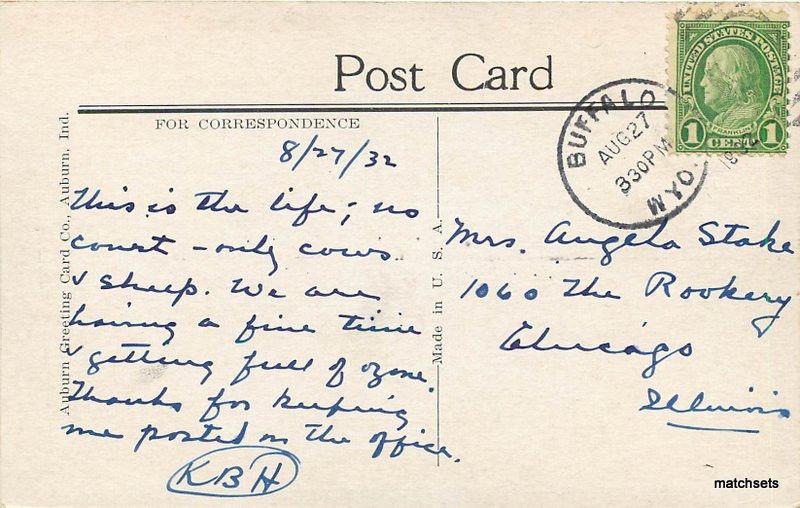 Post Card
FOR CORRESPONDENCE
8/27/32
This is the life; no
court - only cows
& sheep. We are
having a fine time
& getting full of ozone.
Thanks for keeping
me posted on the office.
KBH
Auburn Greeting Card Co., Auburn, Ind.
Made in U. S. A.
UNITED STATES POSTAGE
FRANKLIN
1 CENT 1
BUFFALO WYO.
AUG 27
330PM
1932
Mrs. Angela Stake
1060 The Rookery
Chicago
Illinois
matchsets